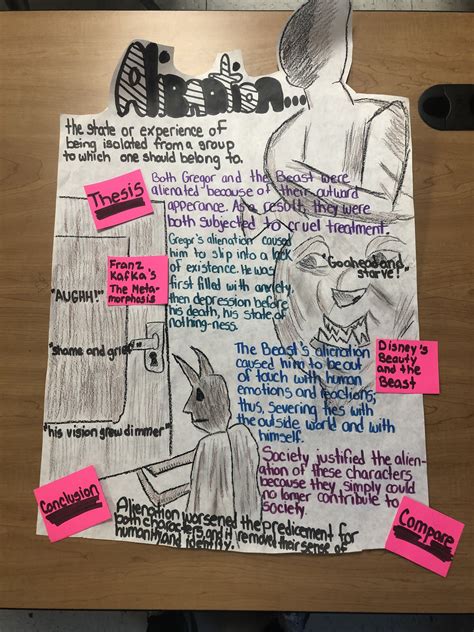 Alienation...
the state or experience of
being isolated from a group
to which one should belong to.
Thesis
Both Gregor and the Beast were
alienated because of their outward
apperance. As a result, they were
both subjected to cruel treatment.
Franz
Kafka's
The Meta-
morphosis
Gregor's alienation caused
him to slip into a lack
of existence. He was
first filled with anxiety,
then depression before
his death, his state of
nothing-ness.
"Goahead and
starve!"
"AUGHH!"
"shame and grief"
"his vision grew dimmer"
Disney's
Beauty
and the
Beast
The Beast's alienation
caused him to be out
of touch with human
emotions and reactions;
thus, severing ties with
the outside world and with
himself.
Society justified the alien-
ation of these characters
because they simply could
no longer contribute to
society.
Conclusion
Compare
Alienation worsened the predicement for
both characters, and it removed their sense of
humanity and identity.